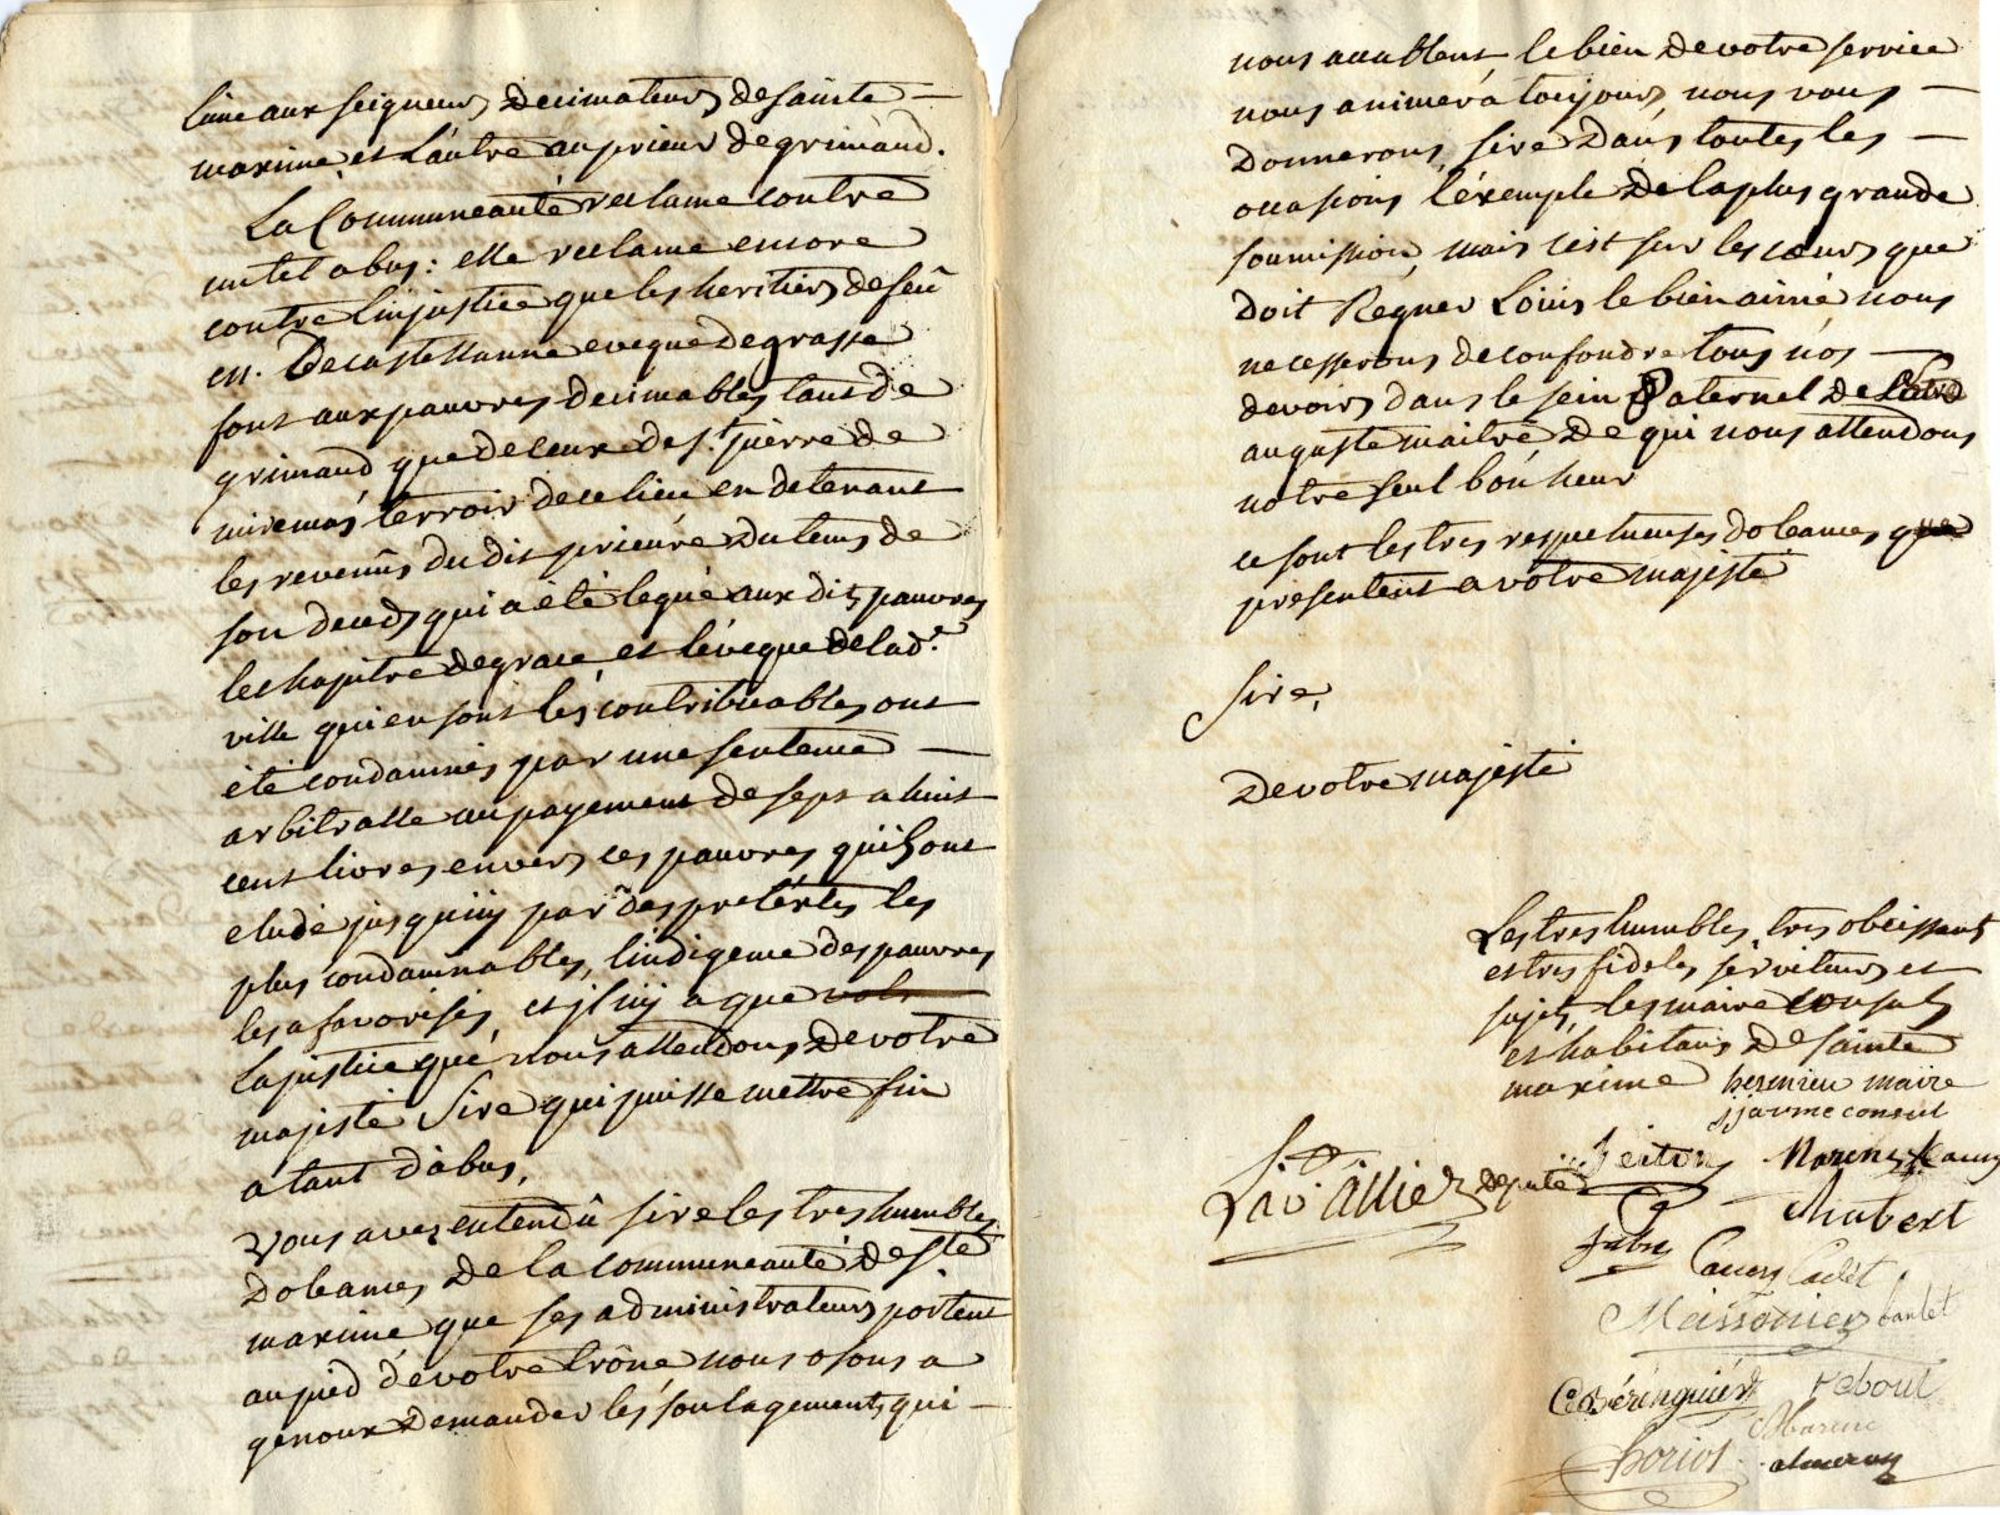 l'une aux seigneurs decimateurs de sainte
maxime, et L'autre au prieur de grimaud.
La Communeauté reclame contre
un tel abus: elle reclame encore
contre l'injustice que les heritiers de feû
m. De castellanne eveque de grasse
font aux pauvres decimables tant de
grimaud que de ceux de st. pierre de
miremas terroir de ce lieu en detenant
les revenûs du dit prieuré du tems de
son deceds qui a été legué aux dits pauvres
le chapitre de grace et l'évêque de lad.e
ville qui en sont les contribuables ont
été condamnés par une sentence
arbitralle au payement de sept a huit
cent livres envers ces pauvres qu'ils ont
eludé jusqu'iy par des pretextes les
plus condamnables, l'indigence des pauvres
les a favorisés, et jl n'y a que votr
La justice que nous attendons de votre
majesté Sire qui puisse mettre fin
a tant d'abus,
Vous avez entendû sire les tres humbles
doleances de la communeauté de ste
maxime que ses administrateurs portent
au pied de votre trône nous osons a
genoux demander les soulagements qui
nous accablent, le bien de votre service
nous animera toujours, nous vous
donnerons, sire dans toutes les
occasions l'éxemple de la plus grande
soumission, mais c'est sur les cœurs que
doit Regner Loüis le bien aimé, nous
ne cesserons de confondre tous nos
devoirs dans le sein Paternel de
auguste maitre de qui nous attendons
notre seul bonheur
ce sont les tres respectueuses doleances que
presentent a votre majesté
Sire,
De votre majesté
Les tres humbles, tres obeissants
et tres fideles serviteurs et
sujets, les maire consuls
et habitans de sainte
maxime hermieu maire
jjaume consul
Lavallier deputé
Aubert
fabre
Caussy Cadet
Meissonier
Bérenguier reboul